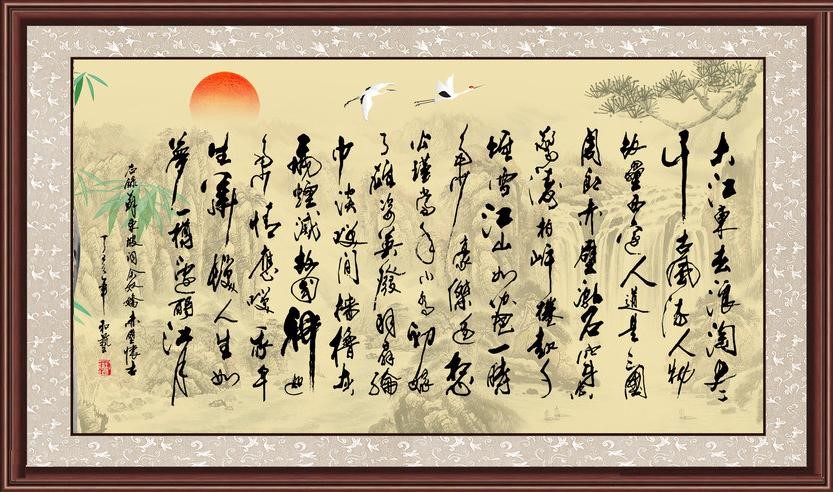 大江東去浪淘盡
千古風流人物
故壘西邊人道是三國
周郎赤壁亂石穿空
驚濤拍岸捲起千
堆雪江山如畫一時
多少豪傑遙想
公瑾當年小喬初嫁
了雄姿英發羽扇綸
巾談笑間檣櫓灰
飛煙滅故國神遊
多情應笑我早
生華髮人生如
夢一樽還酹江月
錄蘇東坡詞念奴嬌赤壁懷古